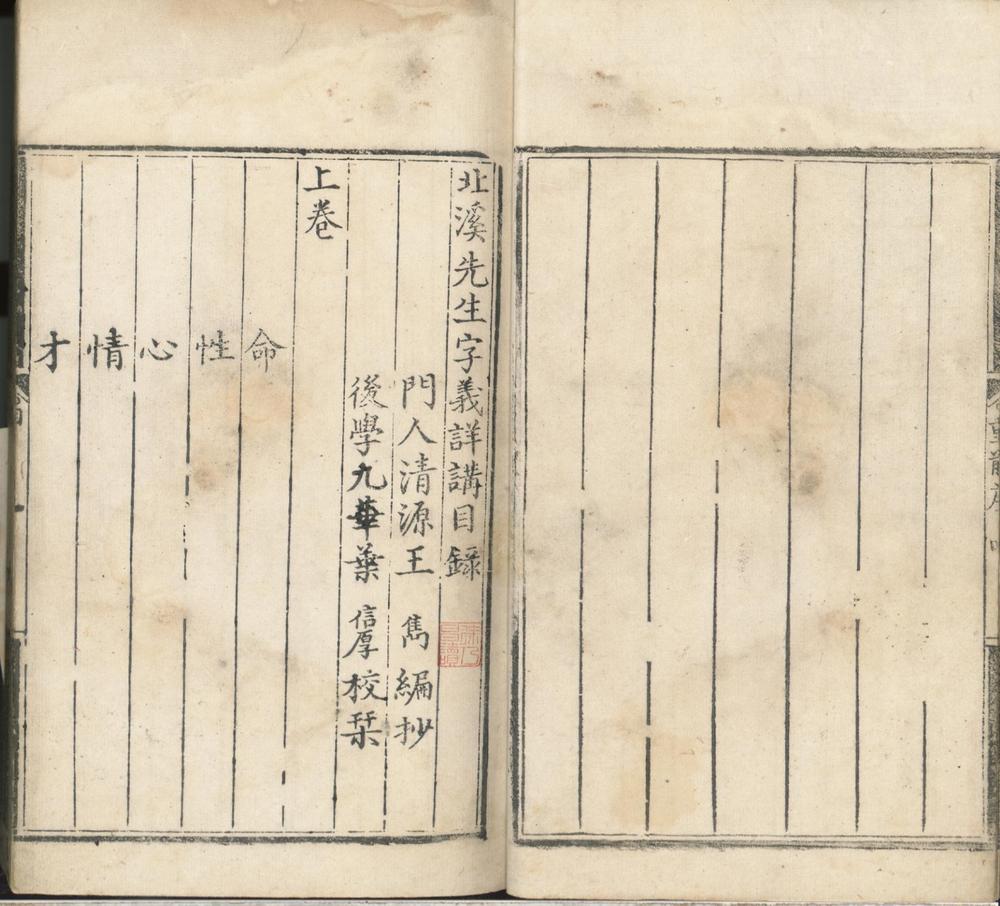 北溪先生字義詳講目録
門人清源王 雋編抄
後學九華葉 信厚校栞
上卷
命
性
心
情
才